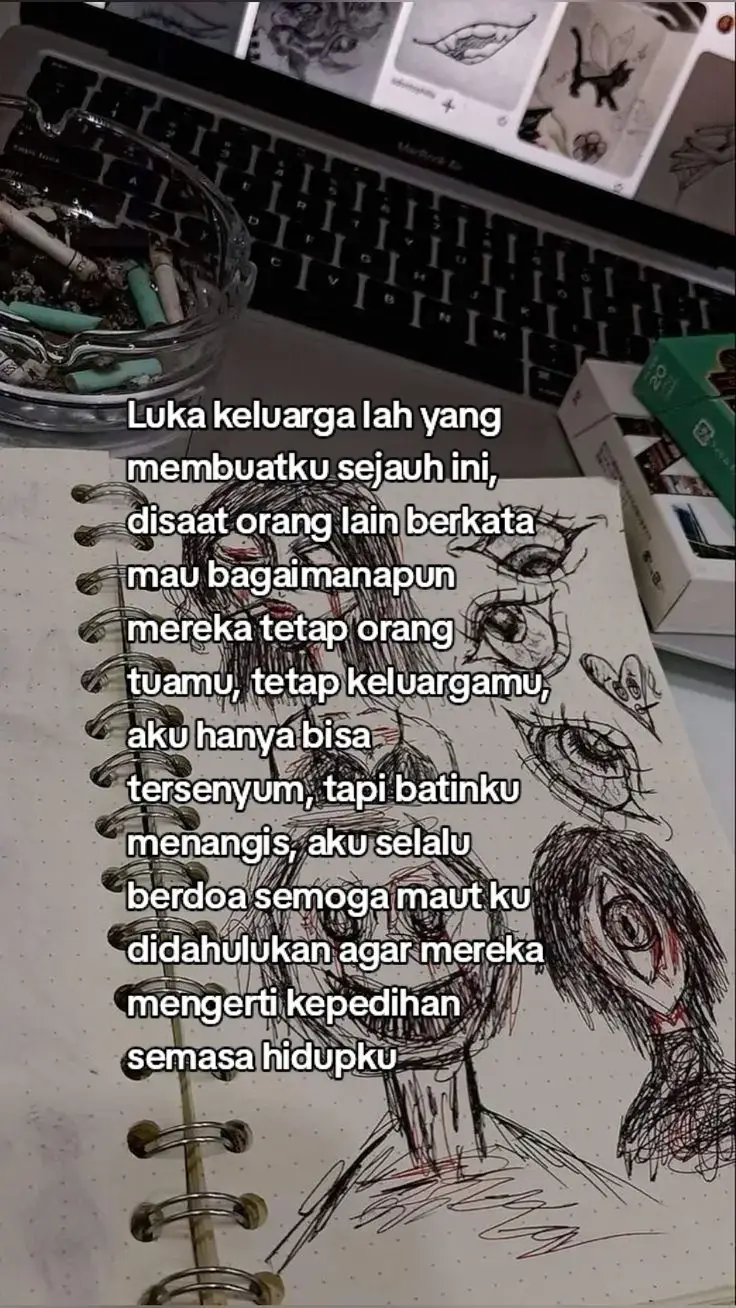 MacBook Air
Luka keluarga lah yang
membuatku sejauh ini,
disaat orang lain berkata
mau bagaimanapun
mereka tetap orang
tuamu, tetap keluargamu,
aku hanya bisa
tersenyum, tapi batinku
menangis, aku selalu
berdoa semoga maut ku
didahulukan agar mereka
mengerti kepedihan
semasa hidupku